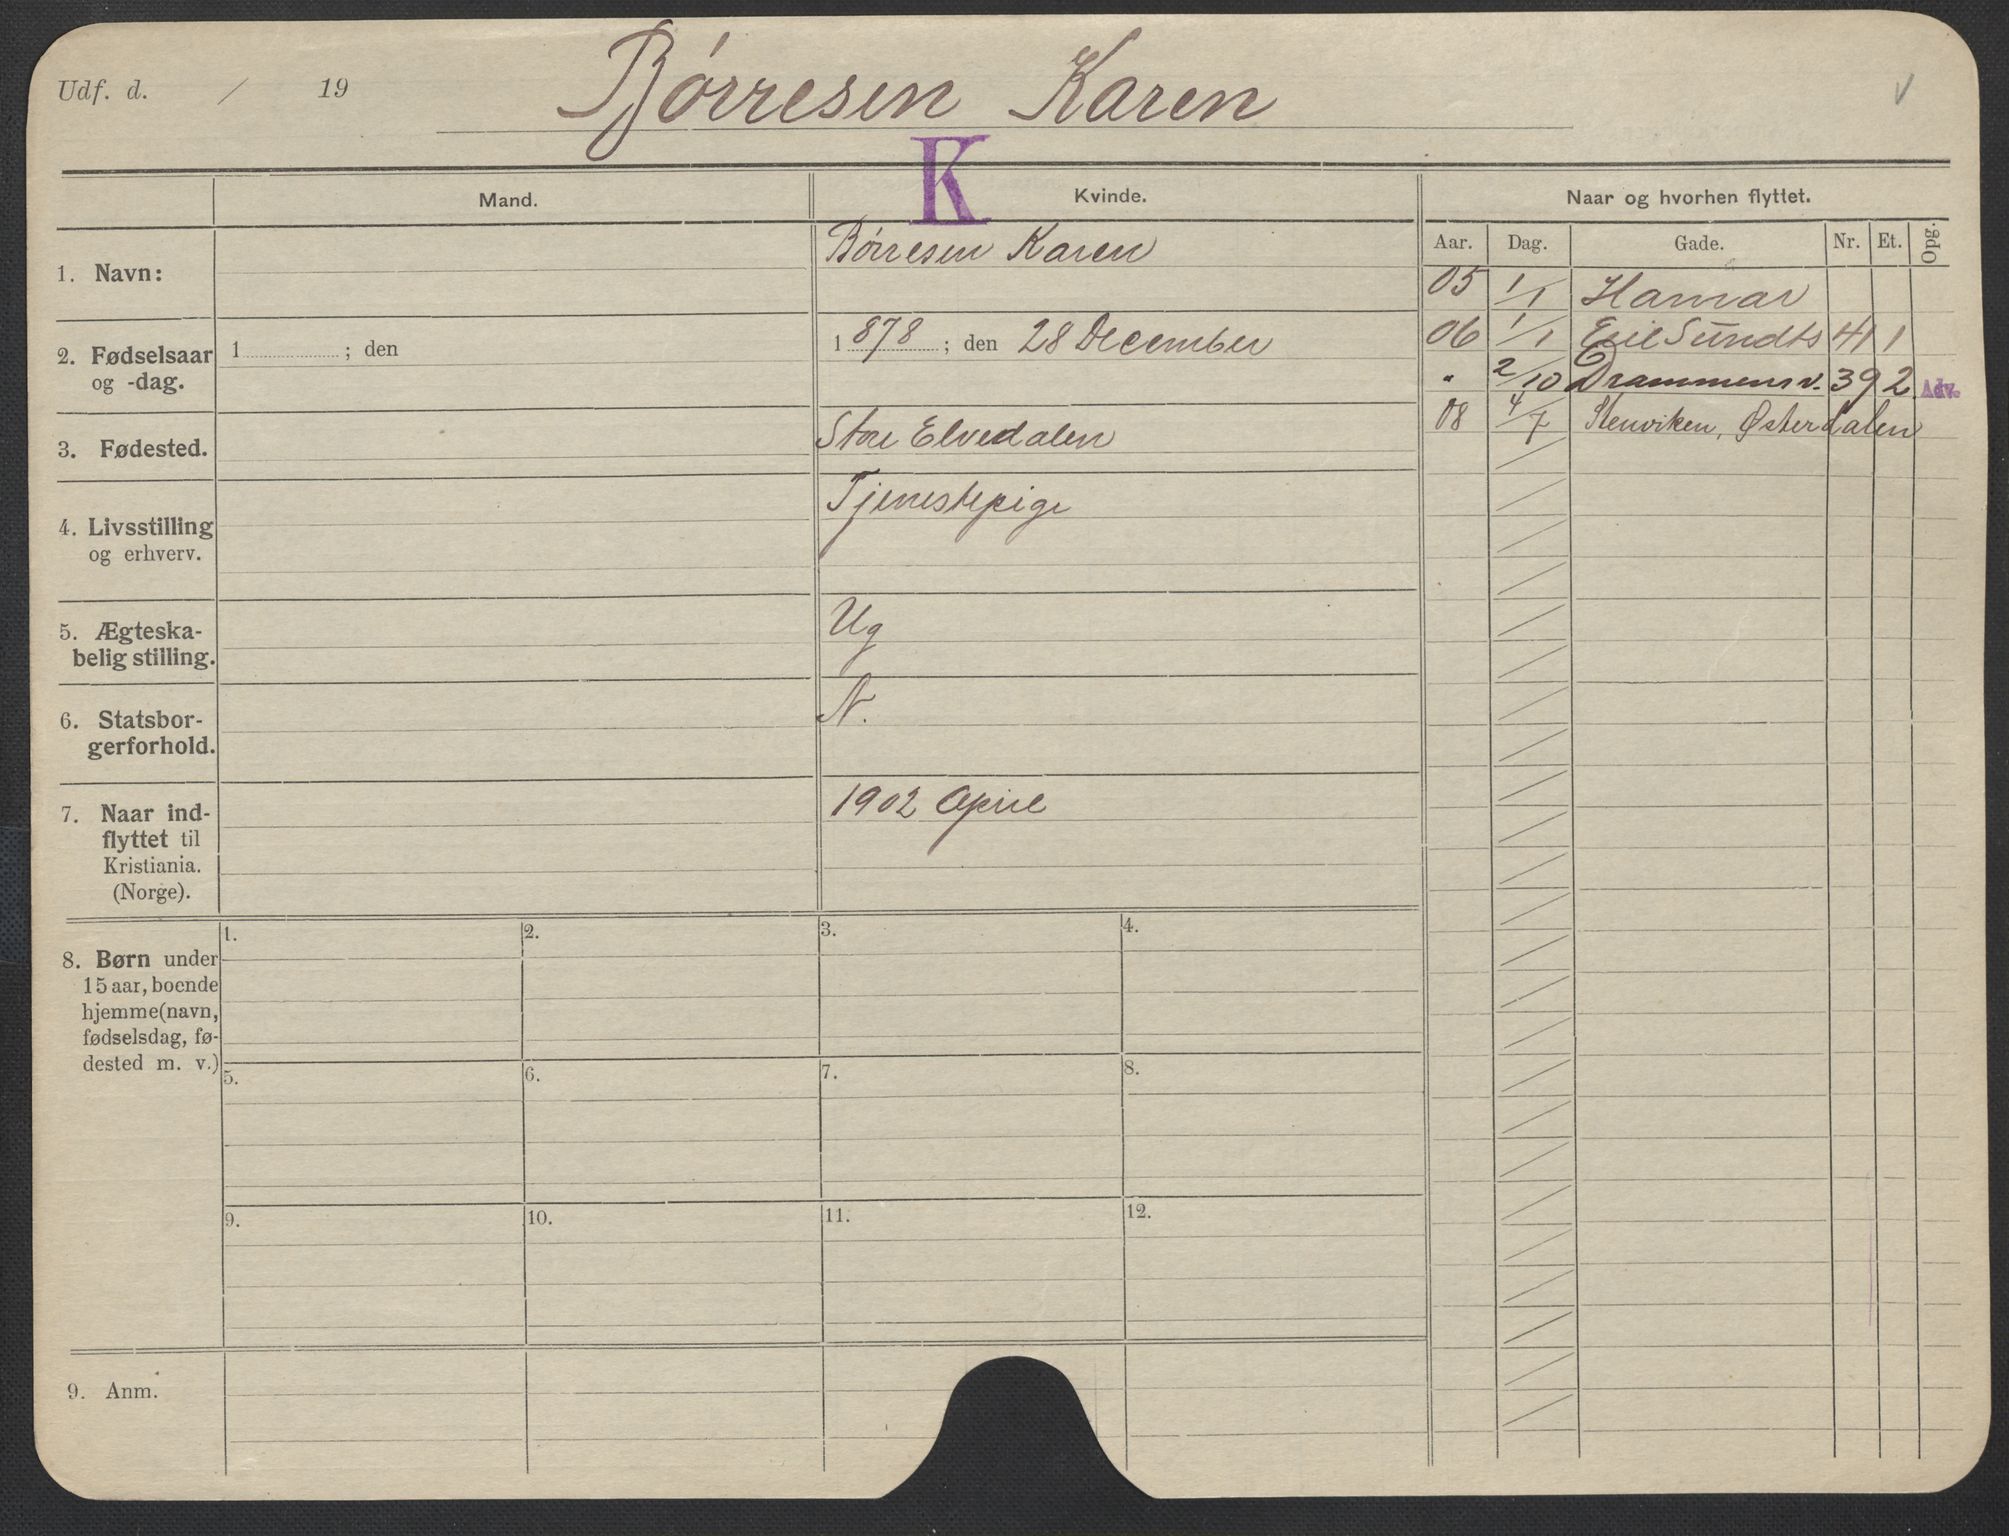 Udf. d. / 19 Børresen Karen v
K
Mand. Kvinde. Naar og hvorhen flyttet.
Aar. Dag. Gade. Nr. Et. Opg.
1. Navn: Børresen Karen
05 1/1 Hamar
2. Fødselsaar og -dag. 1 ; den 1878 ; den 28 December
06 1/1 Eil Sundts 41 1
" 2/10 Drammensv. 39 2 Adv.
3. Fødested. Store Elvedalen
08 4/7 Stenviken, Østerdalen
4. Livsstilling og erhverv. Tjenestepige
5. Ægteska-
belig stilling. Ug
6. Statsbor-
gerforhold. N.
7. Naar ind-
flyttet til
Kristiania.
(Norge). 1902 April
8. Børn under
15 aar, boende
hjemme (navn,
fødselsdag, fø-
dested m. v.)
1. 2. 3. 4.
5. 6. 7. 8.
9. 10. 11. 12.
9. Anm.